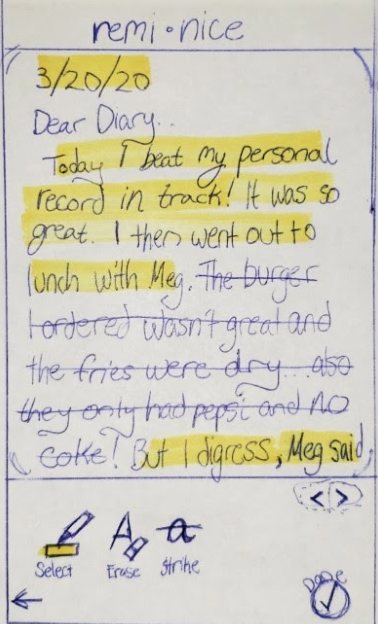 remi•nice
3/20/20
Dear Diary..
Today I beat my personal
record in track! It was so
great. I then went out to
lunch with Meg. The burger
I ordered wasn't great and
the fries were dry... also
they only had pepsi and no
coke! But I digress, Meg said
< >
Select Erase Strike
Done